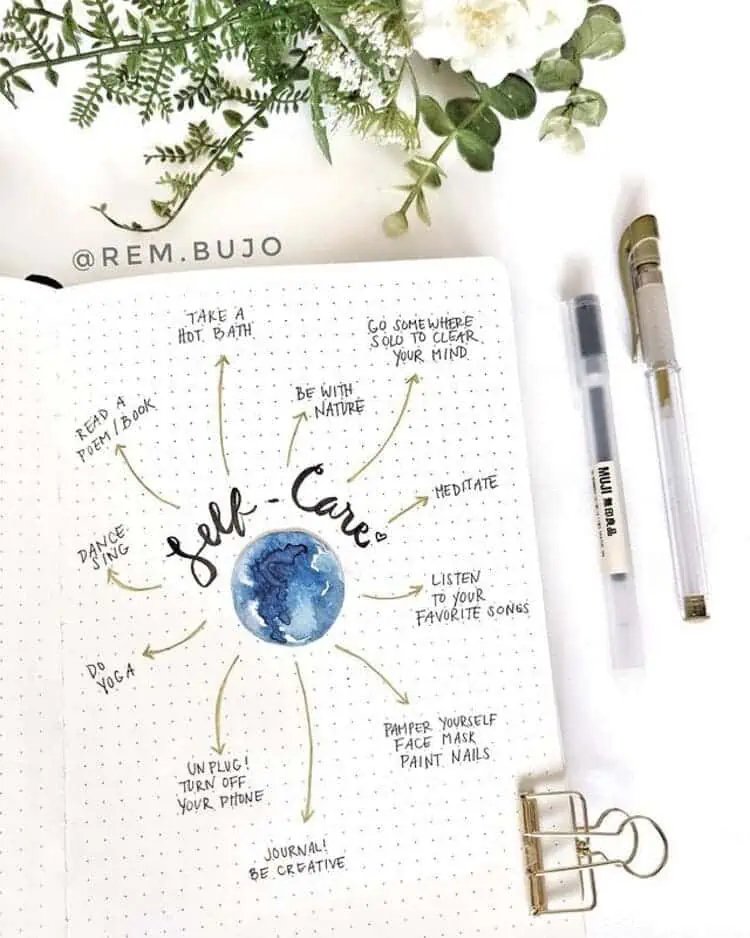 @REM.BUJO
TAKE A
HOT BATH
GO SOMEWHERE
SOLO TO CLEAR
YOUR MIND
BE WITH
NATURE
READ A
POEM/BOOK
Self-Care
MEDITATE
DANCE
SING
LISTEN
TO YOUR
FAVORITE SONGS
DO
YOGA
PAMPER YOURSELF
FACE MASK
PAINT NAILS
UNPLUG!
TURN OFF
YOUR PHONE
JOURNAL!
BE CREATIVE
MUJI 無印良品